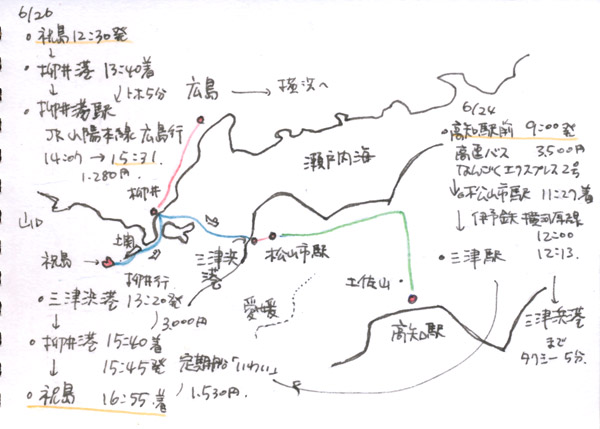 6/26
・祝島 12:30発
↓
・柳井港 13:40着
↓ ↓トホ5分
・柳井港駅
JR山陽本線 広島行
14:07 → 15:31.
1.280円.
広島 → 横浜へ
6/24
・高知駅前 9:00発
高速バス 3,500円
なんごくエクスプレス2号
↓・松山市駅 11:27着
↓ 伊予鉄 横河原線
12:00
・三津駅 12:13.
↓
三津浜港
まで
タクシー 5分.
瀬戸内海
柳井
山口
上関
祝島
三津浜港
松山市駅
土佐山
愛媛
高知駅
柳井行
・三津浜港 13:20発
↓ 3.000円
・柳井港 15:40着
↓ 15:45発 定期船「いわい」
・祝島 16:55着 1.530円.